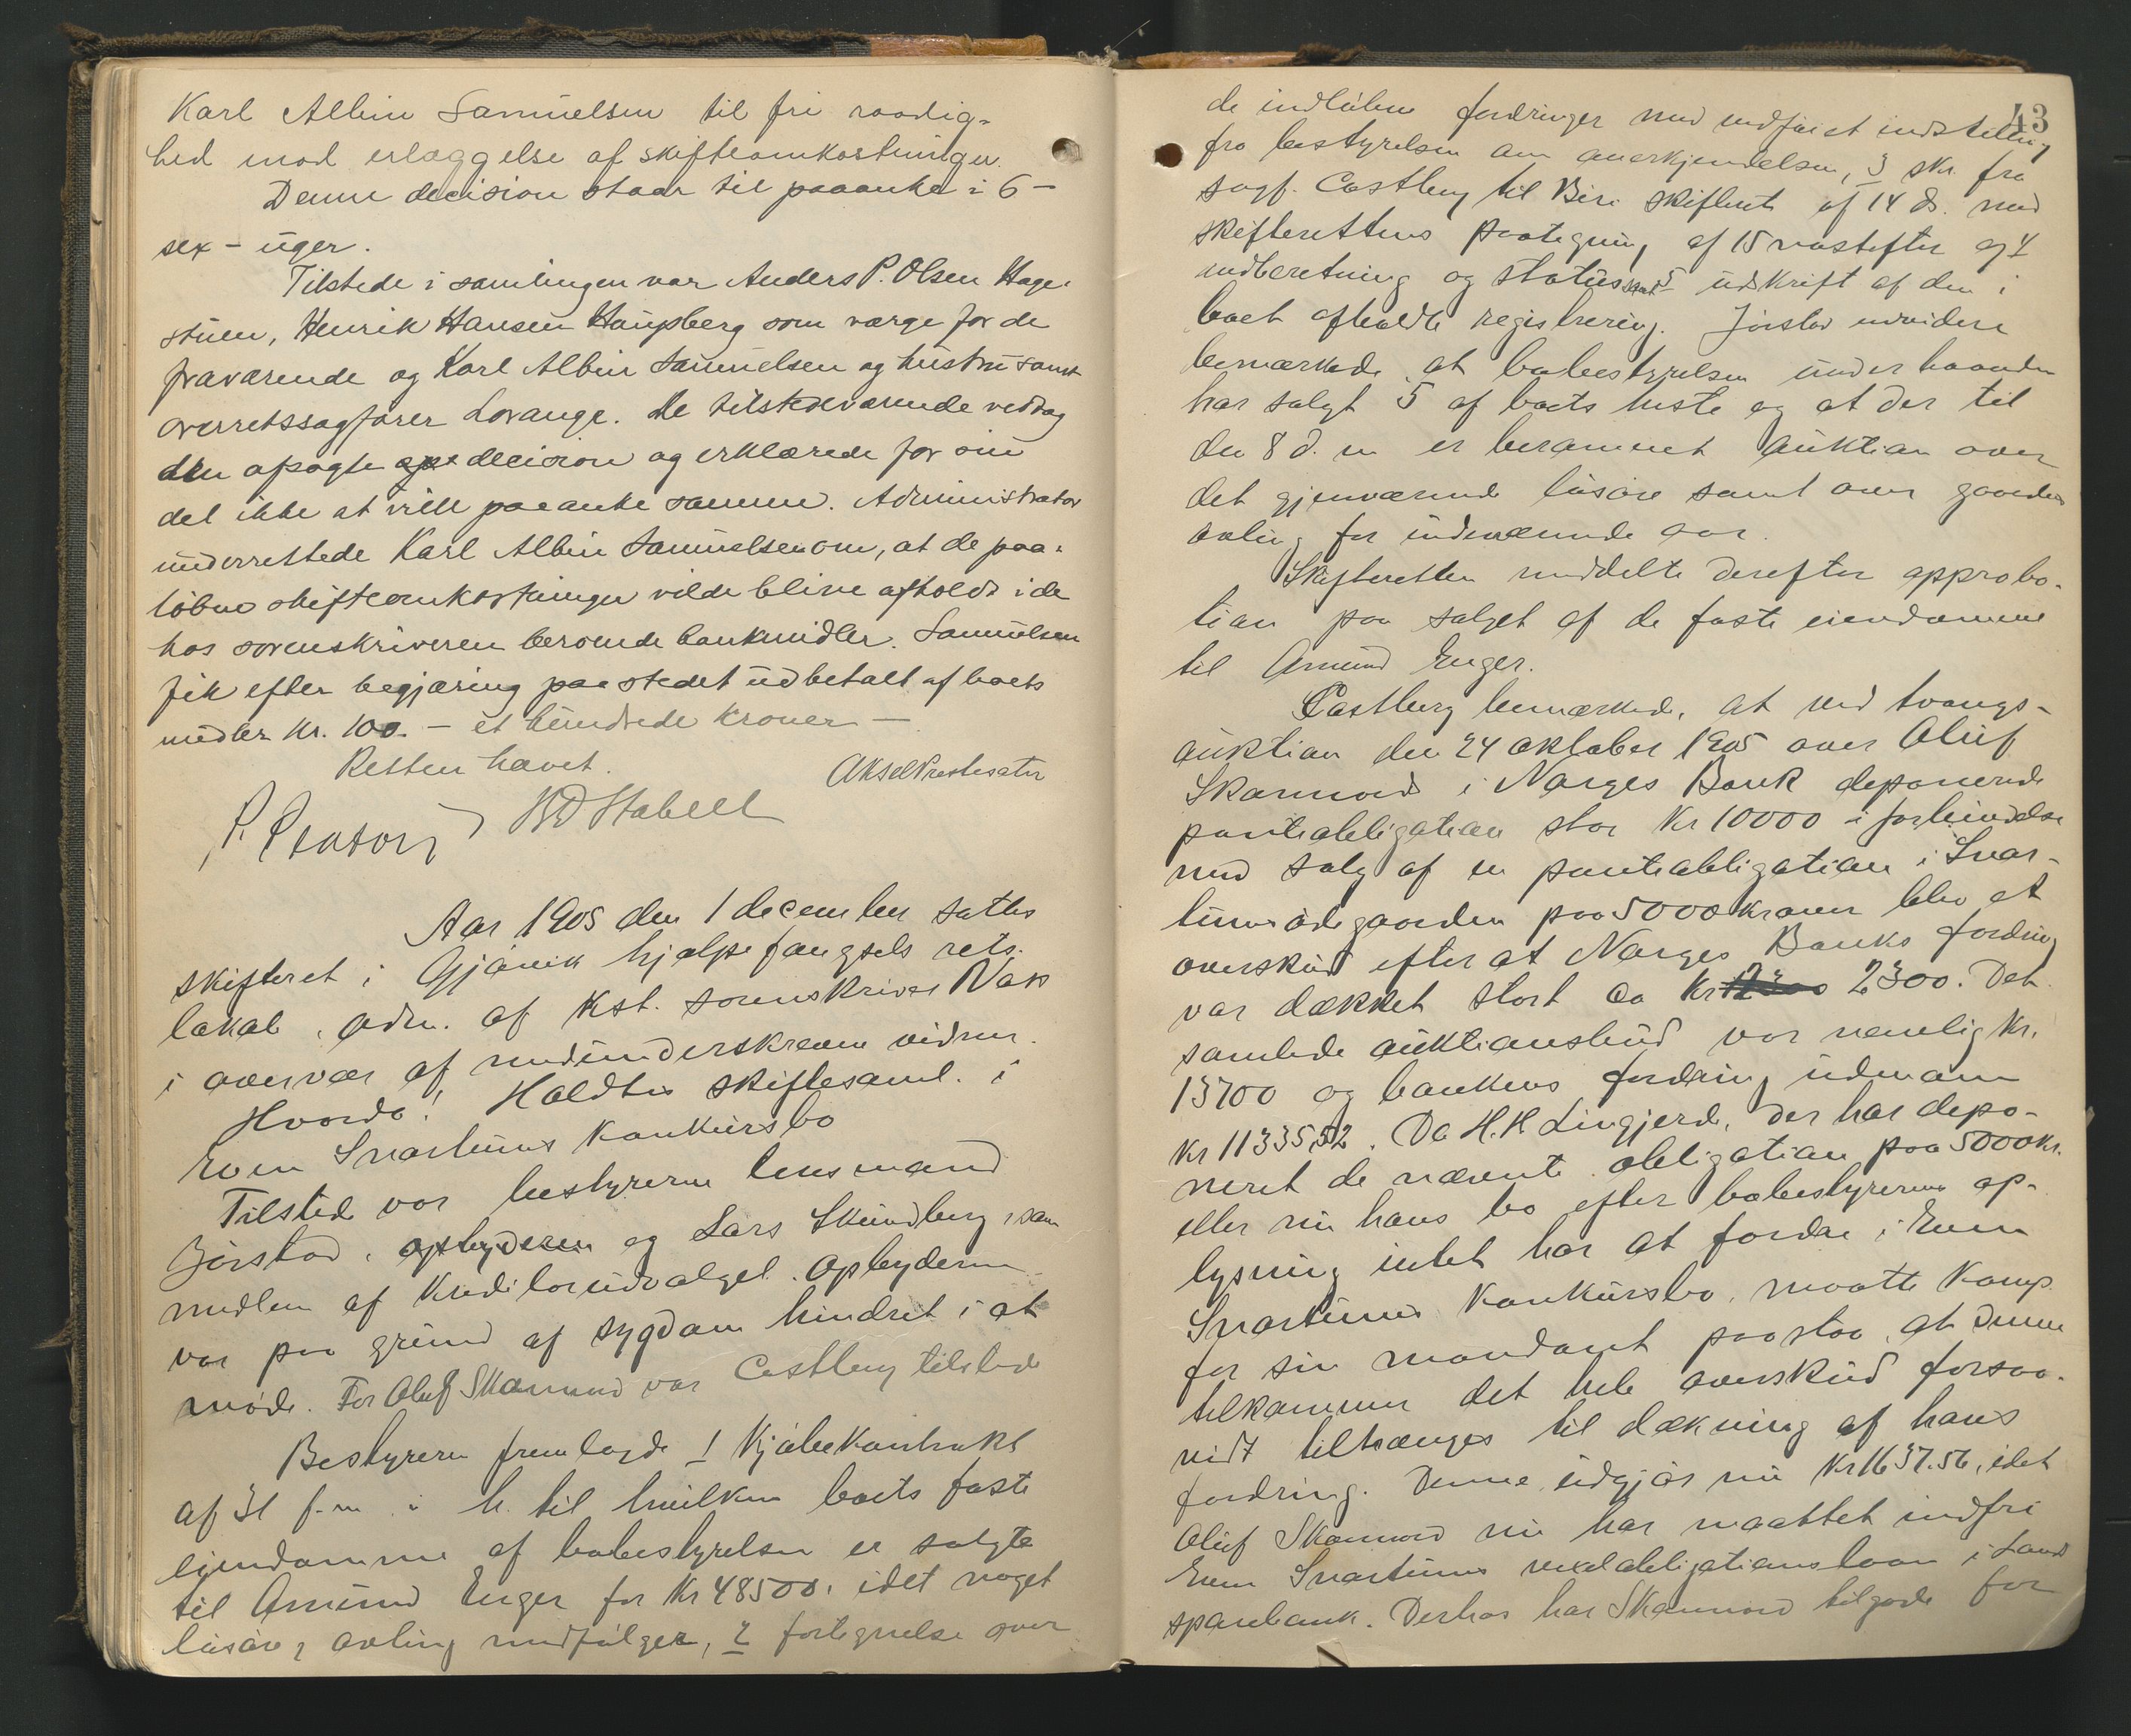 Karl Albin Samuelsen til fri raadig-
hed mod erlæggelse af skifteomkostninger.
Denne decision staar til paaanke i 6 –
sex – uger.
Tilstede i samlingen var Anders P. Olsen Hage-
stuen, Henrik Hansen Haugsberg som værge for de
fraværende og Karl Albin Samuelsen og hustru samt
overretssagfører Lovange. De tilstedeværende vedtog
den afsagte decision og erklærede for sin
del ikke at ville paaanke samme. Administrator
underrettede Karl Albin Samuelsen om, at de paa-
løbne skifteomkostninger vilde blive afholdt i de
hos sorenskriveren beroende bankmidler. Samuelsen
fik efter begjæring paa stedet udbetalt af boets
midler Kr. 100. – et hundrede kroner –
Retten hævet.
Aksel Prestesæter
HD Stabell
Aar 1905 den 1 december sattes
skifteret i Gjøvik hjælpefængsels rets-
lokal, adm. af kst. sorenskriver Næss
i overvær af medunderskrevne vidner.
Hvorda! Holdtes skiftesaml. i
Even Snartums konkursbo
Tilstede var bestyreren lensmand
Jørstad, opbyderen og Lars Skundberg, som
medlem af kreditorudvalget. Opbyderen
var paa grund af sygdom hindret i at
møde. For Oluf Skonnord var Castberg tilstede
Bestyreren fremlagde 1 kjøbekontrakt
af 31 f. m. i h. til hvilken boets faste
eiendomme af bobestyrelsen er solgte
til Amund Enger for Kr 48500, idet noget
løsøre, avling medfølger, 2 fortegnelse over
43
de indløbne fordringer med vedføiet indstilling
fra bestyrelsen om anerkjendelsen, 3 skr. fra
sagf. Castberg til Biri skifteret af 14 ds. med
skifterettens paategning af 15 næstefter og 4
indberetning og status samt 5 udskrift af den i
boet afholdte registrering. Jørstad endvidere
bemærkede, at bobestyrelsen under haanden
har solgt 5 af boets heste og at der til
den 8 d. m er berammet auktion over
det gjenværende løsøre samt over gaardens
avling for indeværende aar.
Skifteretten meddelte derefter approba-
tion paa salget af de faste eiendomme
til Amund Enger.
Castberg bemærkede, at ved tvangs-
auktion den 24 oktober 1905 over Oluf
Skonnord i Norges Bank deponerede
panteobligation stor Kr 10000 i forbindelse
med salg af en panteobligation i Snar-
tumsødegaarden paa 5000 kroner blev et
overskud efter at Norges Banks fordring
var dækket stort ca Kr 2300. Det
samlede auktionsbud var nemlig Kr.
13700 og bankens fordring udenom
Kr 11335,52. Da H. H. Lingjerde, der har depo-
neret de nævnte obligation paa 5000 kr.
eller nu hans bo efter bobestyrerens op-
lysning intet har at fordre i Even
Snartums konkursbo, maatte komp.
for sin mandant paastaa, at denne
tilkommer det hele overskud forsaa-
vidt tiltrænges til dækning af hans
fordring. Denne udgjør nu Kr 1637.56, idet
Oluf Skonnord nu har maattet indfri
Even Snartums vexelobligationslaan i Land
sparebank. Derhos har Skonnord tilgode for